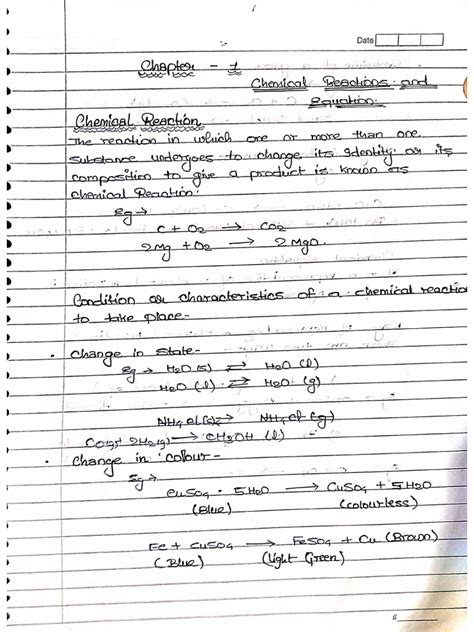 Date
Chapter - 1
Chemical Reactions and
Equation.
Chemical Reaction
The reaction in which one or more than one
Substance undergoes to change its Identity or its
composition to give a product is known as
Chemical Reaction.
Eg →
C + O2 → CO2
2Mg + O2 → 2MgO.
Condition or characteristics of a chemical reaction
to take place-
• Change in state-
Eg → H2O(s) ⇌ H2O(l)
H2O(l) ⇌ H2O(g)
NH4Cl(s) ⇌ NH4Cl(g)
CO(g)+ 2H2(g) → CH3OH (l)
• Change in colour-
Eg →
CuSO4 • 5H2O → CuSO4 + 5H2O
(Blue) (colourless)
Fe + CuSO4 → FeSO4 + Cu (Brown)
(Blue) (light Green)